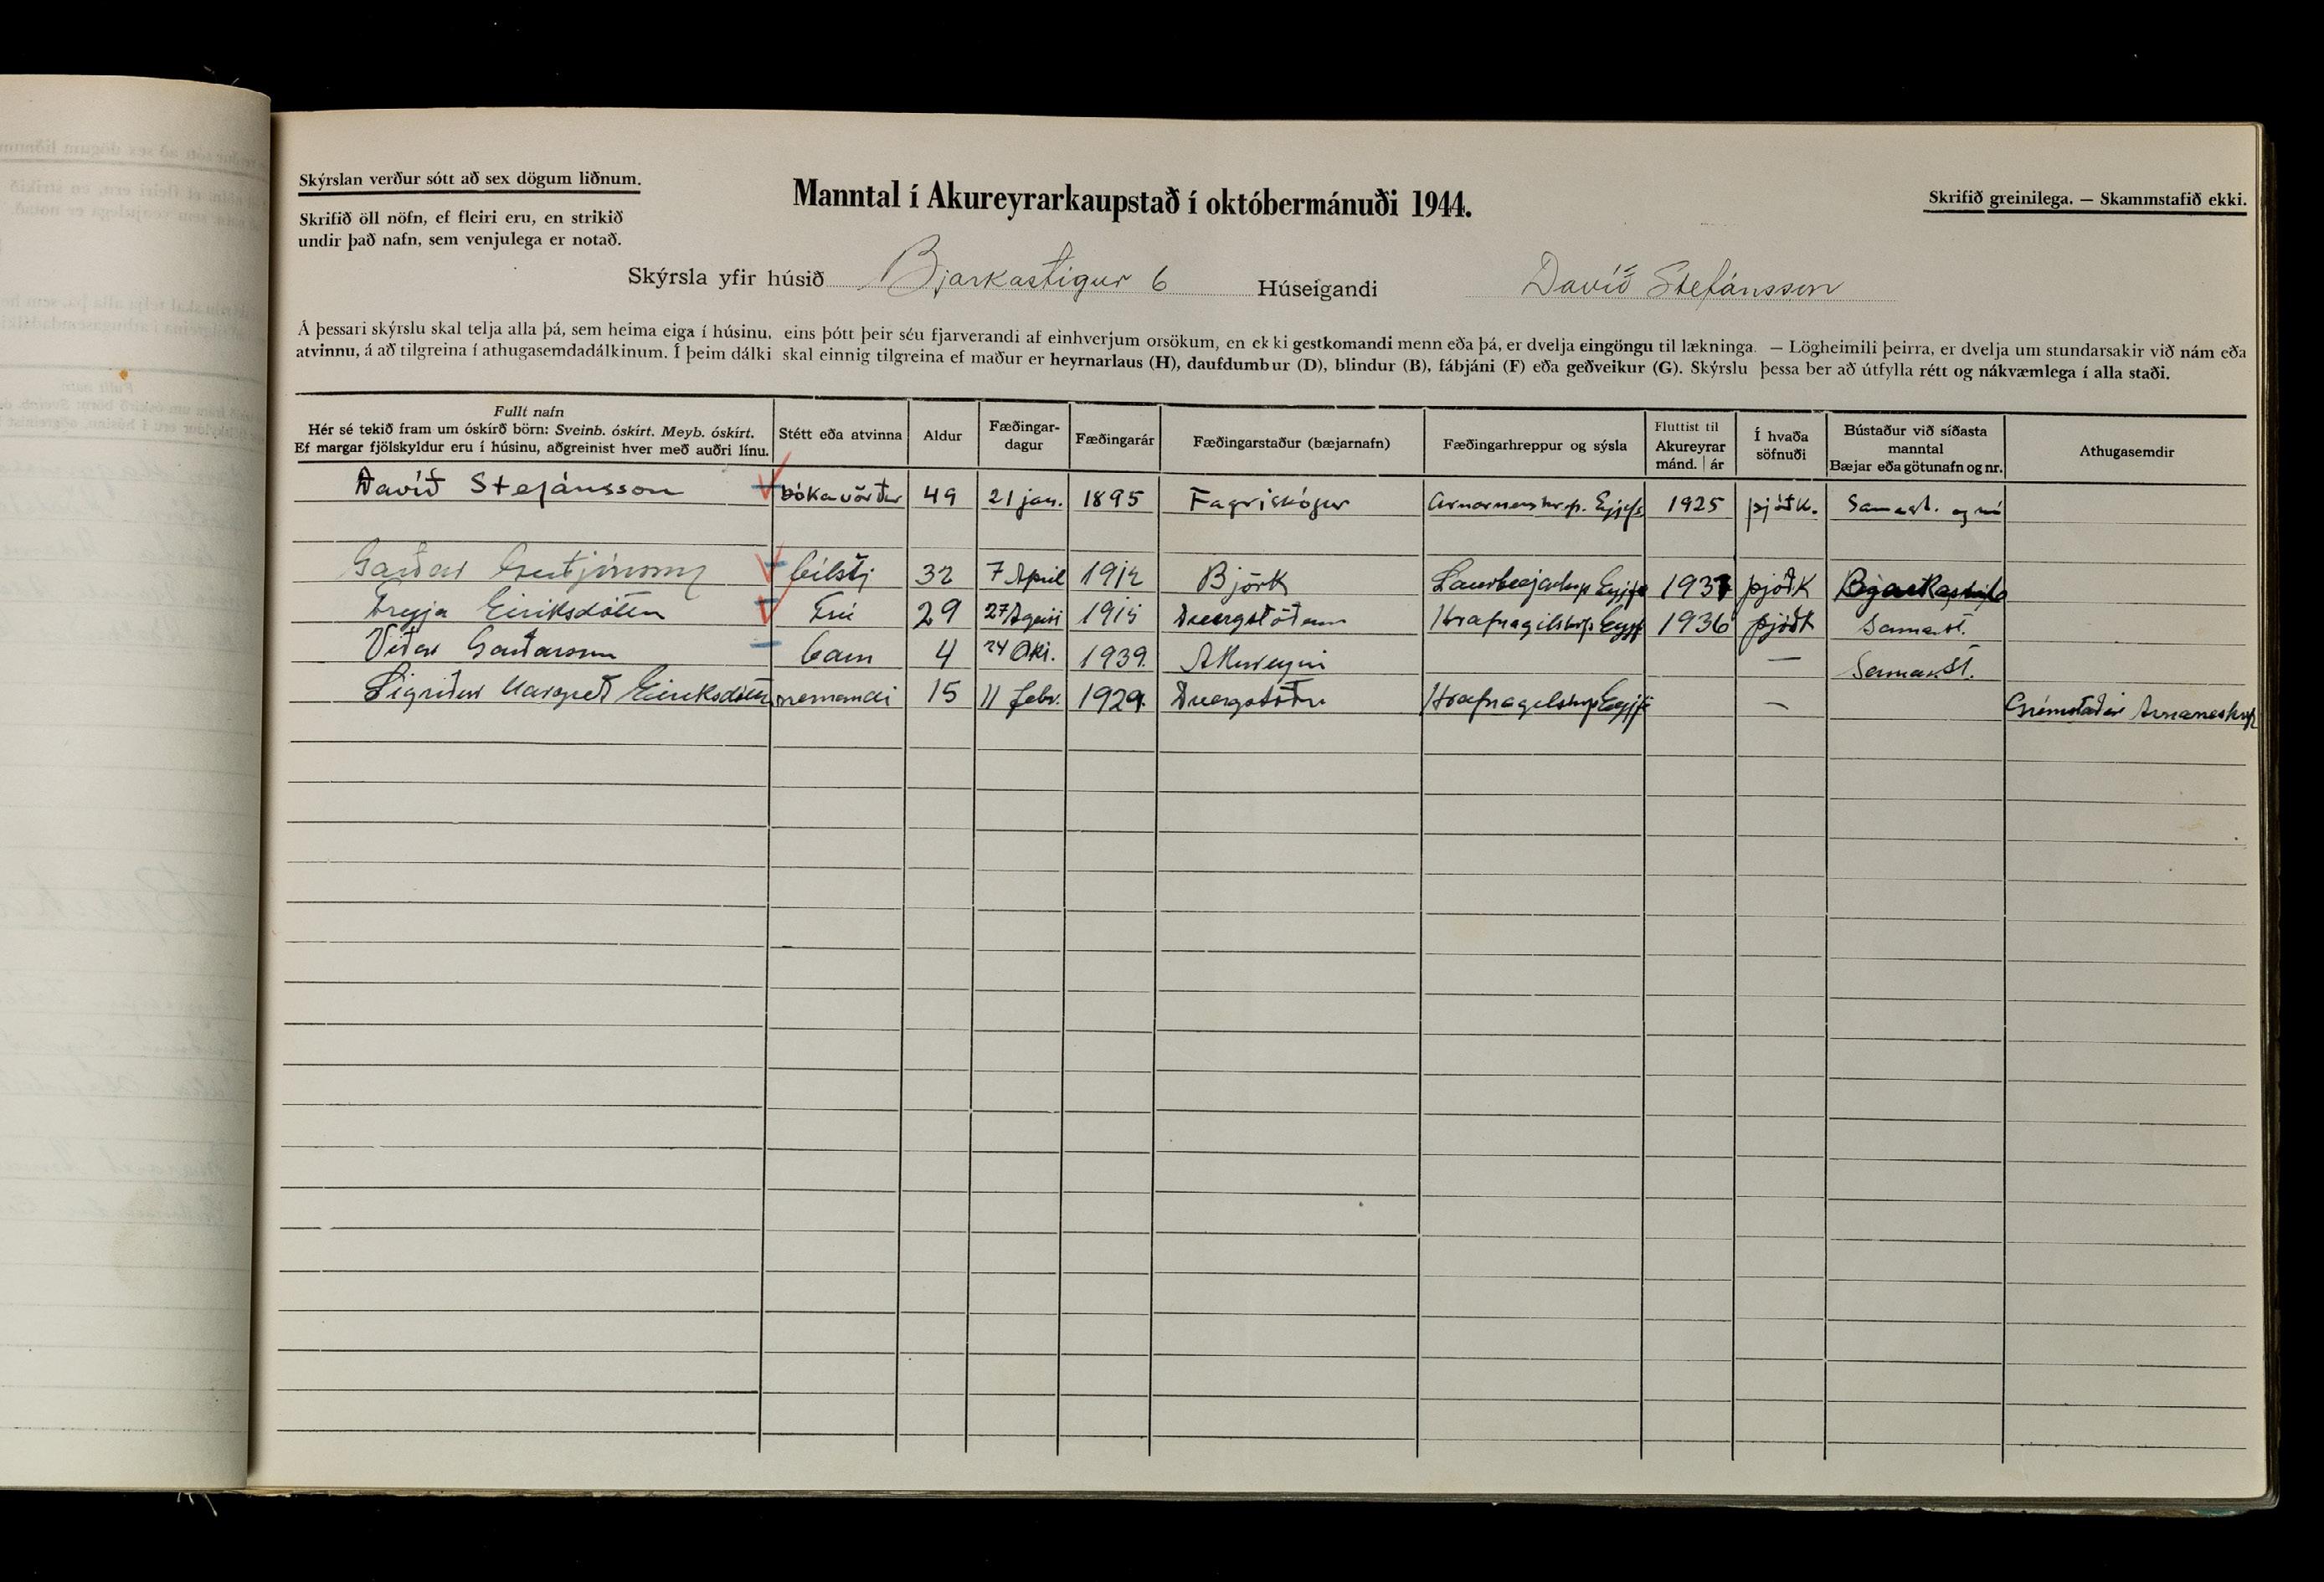 Skýrslan verður sótt að sex dögum liðnum.
Skrifið öll nöfn, ef fleiri eru, en strikið
undir það nafn, sem venjulega er notað.
Manntal í Akureyrarkaupstað í októbermánuði 1944.
Skrifið greinilega. — Skammstafið ekki.
Skýrsla yfir húsið Bjarkastigur 6 Húseigandi Davíð Stefánsson
Á þessari skýrslu skal telja alla þá, sem heima eiga í húsinu, eins þótt þeir séu fjarverandi af einhverjum orsökum, en ekki gestkomandi menn eða þá, er dvelja eingöngu til lækninga. — Lögheimili þeirra, er dvelja um stundarsakir við nám eða
atvinnu, á að tilgreina í athugasemdadálkinum. Í þeim dálki skal einnig tilgreina ef maður er heyrnarlaus (H), daufdumbur (D), blindur (B), fábjáni (F) eða geðveikur (G). Skýrslu þessa ber að útfylla rétt og nákvæmlega í alla staði.
Fullt nafn
Hér sé tekið fram um óskírð börn: Sveinb. óskírt. Meyb. óskírt.
Ef margar fjölskyldur eru í húsinu, aðgreinist hver með auðri línu.
Stétt eða atvinna
Aldur
Fæðingar-
dagur
Fæðingarár
Fæðingarstaður (bæjarnafn)
Fæðingarhreppur og sýsla
Fluttist til
Akureyrar
mánd. | ár
Í hvaða
söfnuði
Bústaður við síðasta
manntal
Bæjar eða götunafn og nr.
Athugasemdir
Davíð Stefánsson bókavörður 49 21 jan. 1895 Fagriskógur Arnarneshrp. Eyjafs 1925 þjóðk. Samast. og nú
Garðar Guðjónsson bílstj 32 7 April 1912 Björk 1937 þjóðk
Freyja Eiriksdóttir Frú 29 27 Agúst 1915 Dvergstöðum Hrafnagilshrp Eyjf 1936 þjóðk Samast.
Viðar Garðarsson barn 4 24 Okt. 1939. Akureyri — Samast.
Sigriður Margret Eiriksdóttir nemandi 15 11 febr. 1929. Dvergstöðum Hrafnagilshrp Eyjf — Arnarneshrp